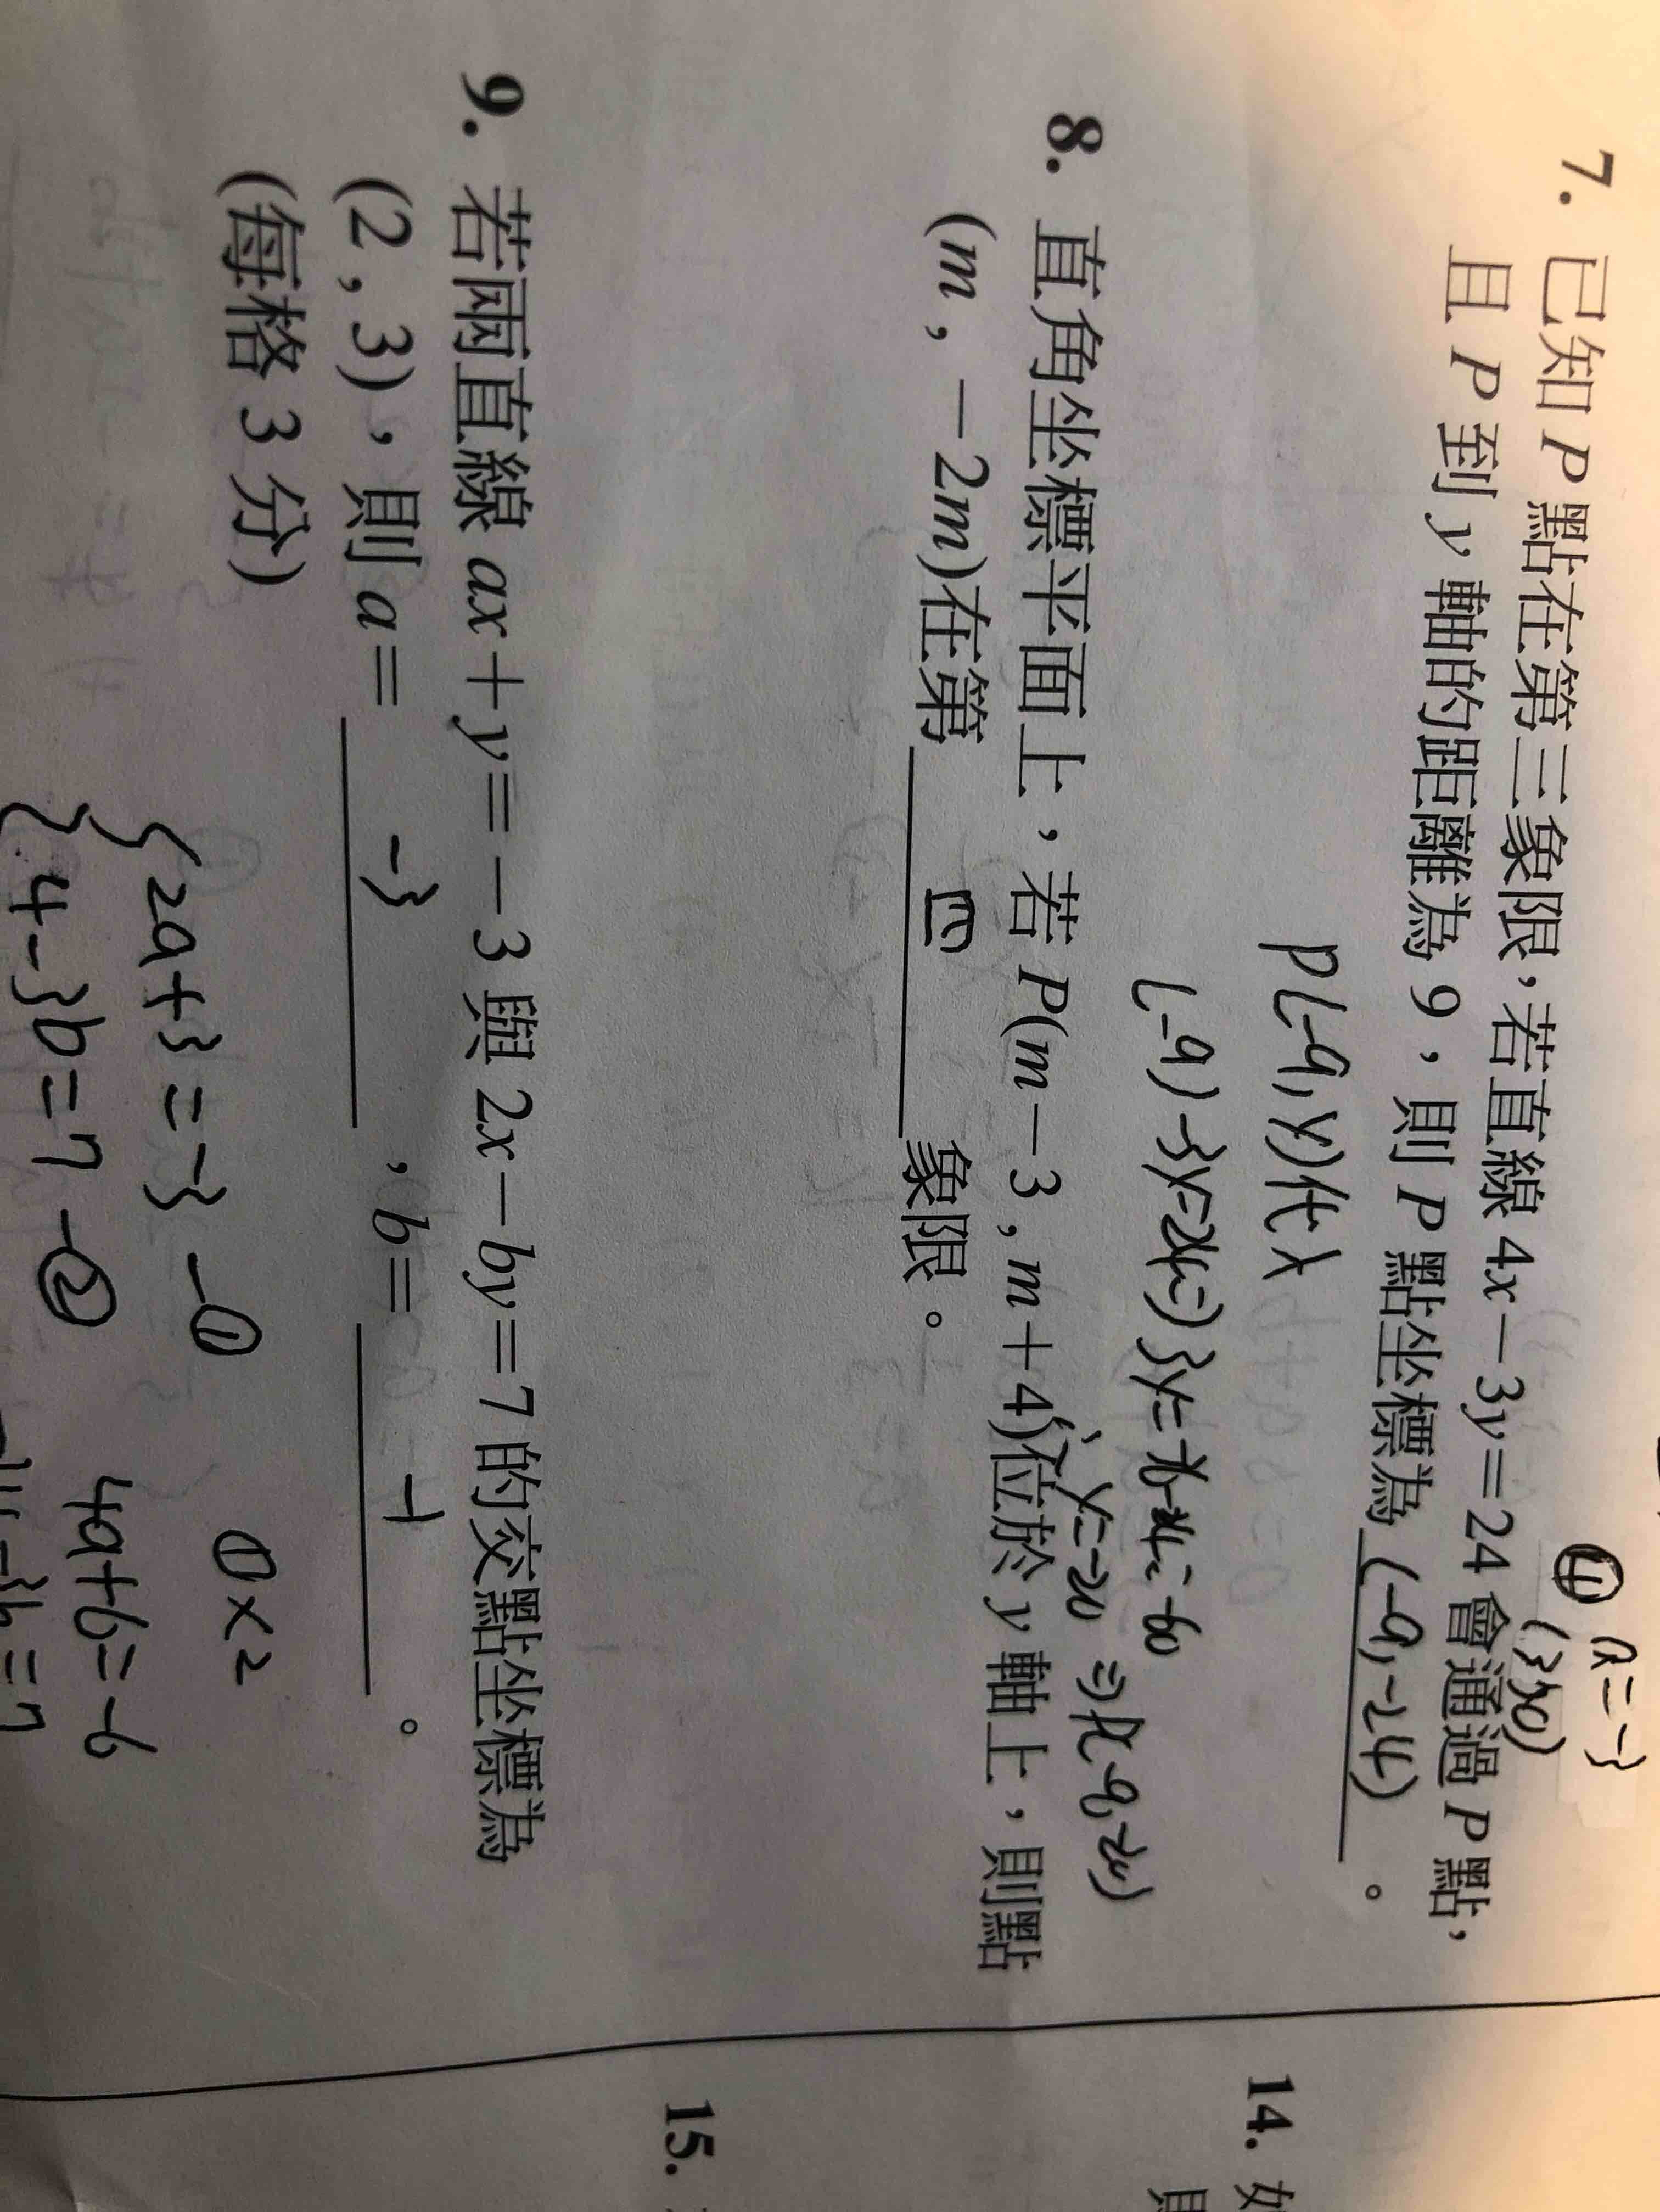 ④ a=-3
(3,0)
7. 已知 P 點在第三象限，若直線 4x－3y＝24 會通過 P 點，
且 P 到 y 軸的距離為 9，則 P 點坐標為 (-9,-24) 。
P(-9,y)代入
y=-20
8. 直角坐標平面上，若 P(m－3 , m＋4)位於 y 軸上，則點
(m , －2m)在第 四 象限。
9. 若兩直線 ax＋y＝－3 與 2x－by＝7 的交點坐標為
(2 , 3)，則 a＝ -3 ，b＝ -1 。
(每格 3 分)
2a+3=-3 -① ①×2
4-3b=7 -② 4a+6=-6
14.
15.